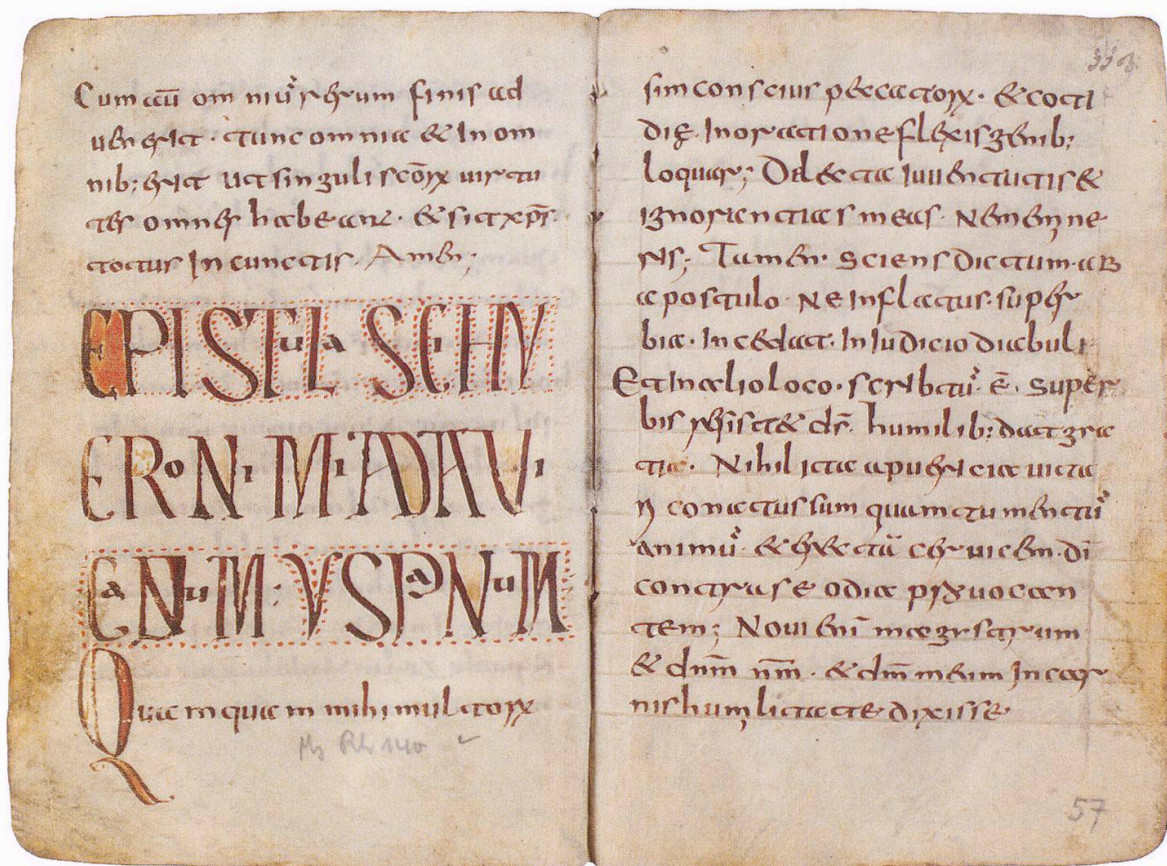 Cum au̅ om niu̅ rerum finis ad
uen erit · tunc om nia & In om
nib; erit ut singuli sc̅oꝝ uirtu
tes omnes habeant · & sit xp̅s
totus In cunctis · Amen;
EPISTuLa SCiHV
ERoNiMiADAVi
EaNDuM: VSPaNuM
Quam quam mihi multoꝝ
sim conscius peccatoꝝ · & coti
die · In oratione flexis genib;
loquar; Delecta Iuuentutis &
ignorantias meas · Nememne
ris; Tamen · Sciens dictum · ab
apostulo · Ne Inflatus · super
bia · Incedat · In Iudicio diabuli
Et In alio loco · scribtu̅ e̅ · Super
bis resistet ds̅ · humilib; dat gra
tia · Nihil ita a pueritia uita
conatus sum quam tumentu̅
animu̅ · & erecta̅ ceruicem · di̅
contra se odia prouocan
tem; Noui eni̅ magistrum
& dnm̅ nm̅ · & dm̅ meum In car
nis humlitate dixisse
57